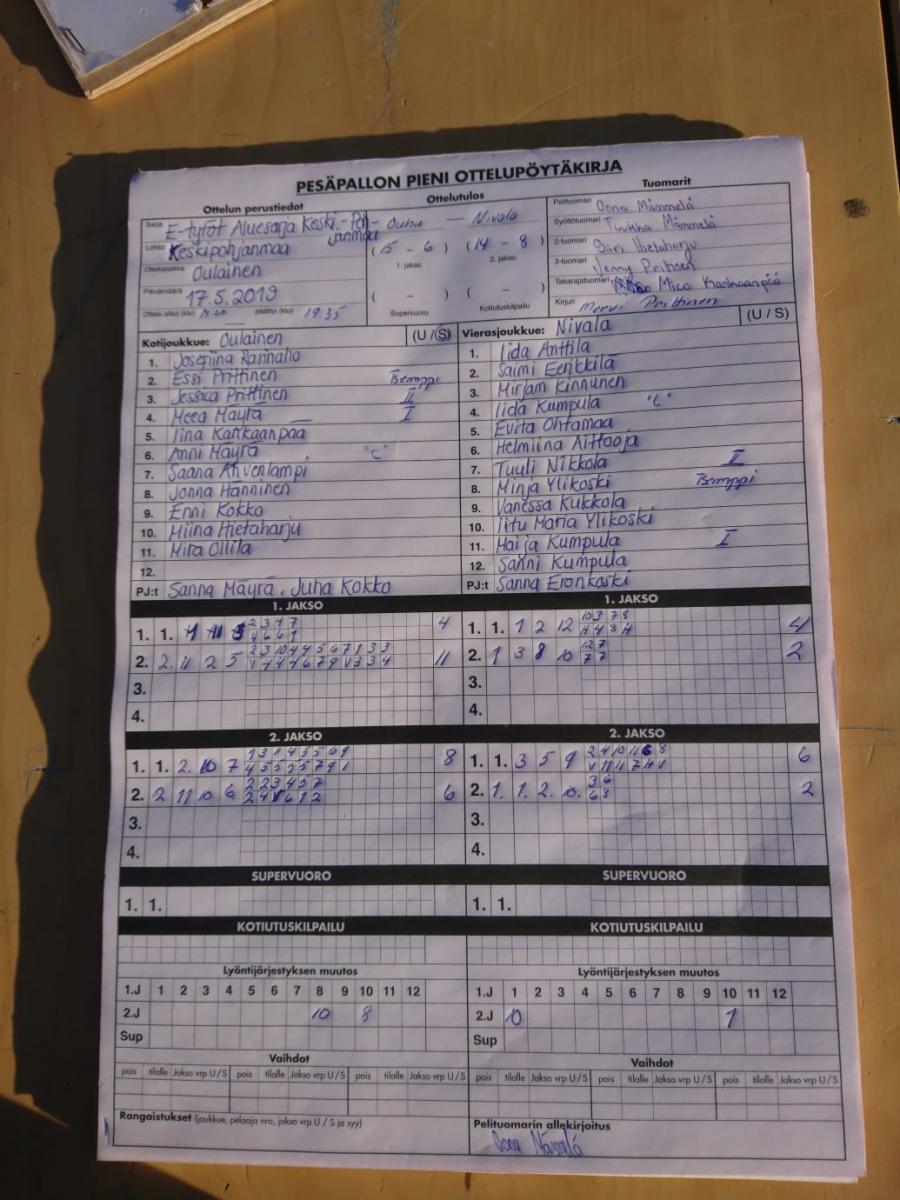 PESÄPALLON PIENI OTTELUPÖYTÄKIRJA
Ottelun perustiedot
Ottelutulos
Tuomarit
Sarja E-tytöt Aluesarja Keski-Poh-
janmaa
Lohko Keskipohjanmaa
Ottelupaikka Oulainen
Päivämäärä 17.5.2019
Ottelu alkoi (klo) päättyi (klo) 19:35
Nivala
(15 - 6) (14 - 8)
1. jakso 2. jakso
( - ) ( - )
Supervuoro Kotiutuskilpailu
Pelituomari Mämmelä
Syöttötuomari Tuukka Mämmelä
2-tuomari Sari Hietaharju
3-tuomari Jenny Prittinen
Takarajatuomari Mico Kankaanpää
Kirjuri Mervi Prittinen
Kotijoukkue: Oulainen (U / S)
1. Josefiina Rannaho
2. Essi Prittinen Tsemppi
3. Jessica Prittinen II
4. Meea Mäyrä I
5. Iina Kankaanpää
6. Anni Mäyrä "C"
7. Saana Ahvenlampi
8. Jonna Hänninen
9. Enni Kokko
10. Miina Hietaharju
11. Mira Ollila
12.
PJ:t Sanna Mäyrä, Juha Kokko
Vierasjoukkue: Nivala (U / S)
1. Iida Anttila
2. Saimi Eenkkilä
3. Mirjam Kinnunen
4. Iida Kumpula "C"
5. Evita Ohtamaa
6. Helmiina Aittooja
7. Tuuli Nikkola II
8. Minja Ylikoski Tsemppi
9. Vanessa Kukkola
10. Iitu Maria Ylikoski
11. Maija Kumpula I
12. Sanni Kumpula
PJ:t Sanna Eronkoski
1. JAKSO
1. 1. 4
2. 2. 11 2 5 11
3.
4.
1. JAKSO
1. 1. 1 2 12 4
2. 1 3 8 10 2
3.
4.
2. JAKSO
1. 1. 2. 10 7 8
2. 2 11 10 6 6
3.
4.
2. JAKSO
1. 1. 3 5 9 6
2. 1. 1. 2. 10. 2
3.
4.
SUPERVUORO
1. 1.
SUPERVUORO
1. 1.
KOTIUTUSKILPAILU
KOTIUTUSKILPAILU
Lyöntijärjestyksen muutos
1.J 1 2 3 4 5 6 7 8 9 10 11 12
2.J 10 8
Sup
Lyöntijärjestyksen muutos
1.J 1 2 3 4 5 6 7 8 9 10 11 12
2.J 10 1
Sup
Vaihdot
pois tilalle Jakso vrp U / S pois tilalle Jakso vrp U / S pois tilalle Jakso vrp U / S
Vaihdot
pois tilalle Jakso vrp U / S pois tilalle Jakso vrp U / S pois tilalle Jakso vrp U / S
Rangaistukset (joukkue, pelaaja nro, jakso vrp U / S ja syy)
Pelituomarin allekirjoitus
Mämmelä